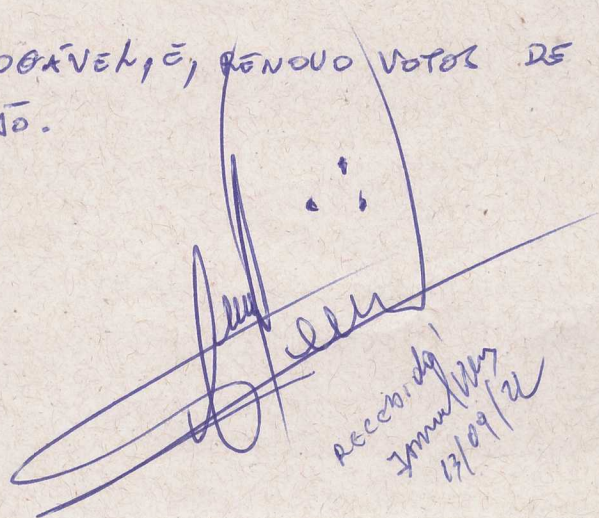 OGÁVEL, E, RENOVO VOTOS DE
ÃO.
RECEBIDO!
13/09/22